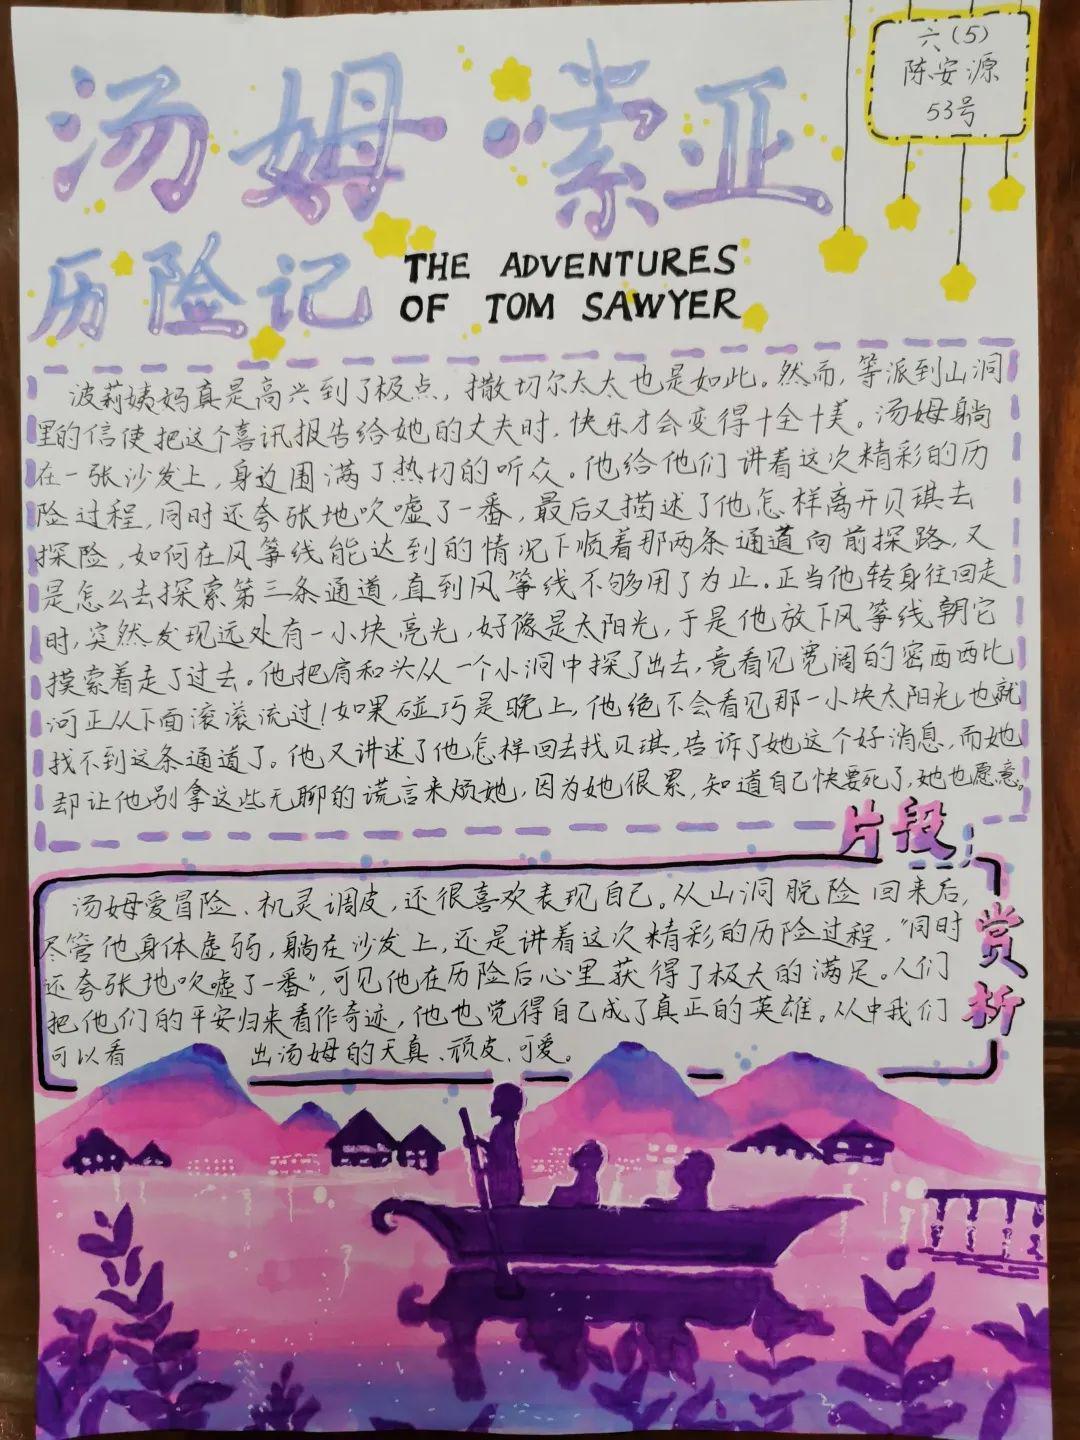 六(5)
陈安源
53号
汤姆·索亚
历险记
THE ADVENTURES
OF TOM SAWYER
波莉姨妈真是高兴到了极点，撒切尔太太也是如此。然而，等派到山洞
里的信使把这个喜讯报告给她的丈夫时，快乐才会变得十全十美。汤姆躺
在一张沙发上，身边围满了热切的听众。他给他们讲着这次精彩的历
险过程，同时还夸张地吹嘘了一番，最后又描述了他怎样离开贝琪去
探险，如何在风筝线能达到的情况下顺着那两条通道向前探路，又
是怎么去探索第三条通道，直到风筝线不够用了为止。正当他转身往回走
时，突然发现远处有一小块亮光，好像是太阳光，于是他放下风筝线朝它
摸索着走了过去。他把肩和头从一个小洞中探了出去，竟看见宽阔的密西西比
河正从下面滚滚流过！如果碰巧是晚上，他绝不会看见那一小块太阳光，也就
找不到这条通道了。他又讲述了他怎样回去找贝琪，告诉了她这个好消息，而她
却让他别拿这些无聊的谎言来烦她，因为她很累，知道自己快要死了，她也愿意。
片段
赏析
汤姆爱冒险、机灵调皮，还很喜欢表现自己。从山洞脱险回来后，
尽管他身体虚弱，躺在沙发上，还是讲着这次精彩的历险过程，“同时
还夸张地吹嘘了一番”，可见他在历险后心里获得了极大的满足。人们
把他们的平安归来看作奇迹，他也觉得自己成了真正的英雄。从中我们
可以看出汤姆的天真、顽皮、可爱。